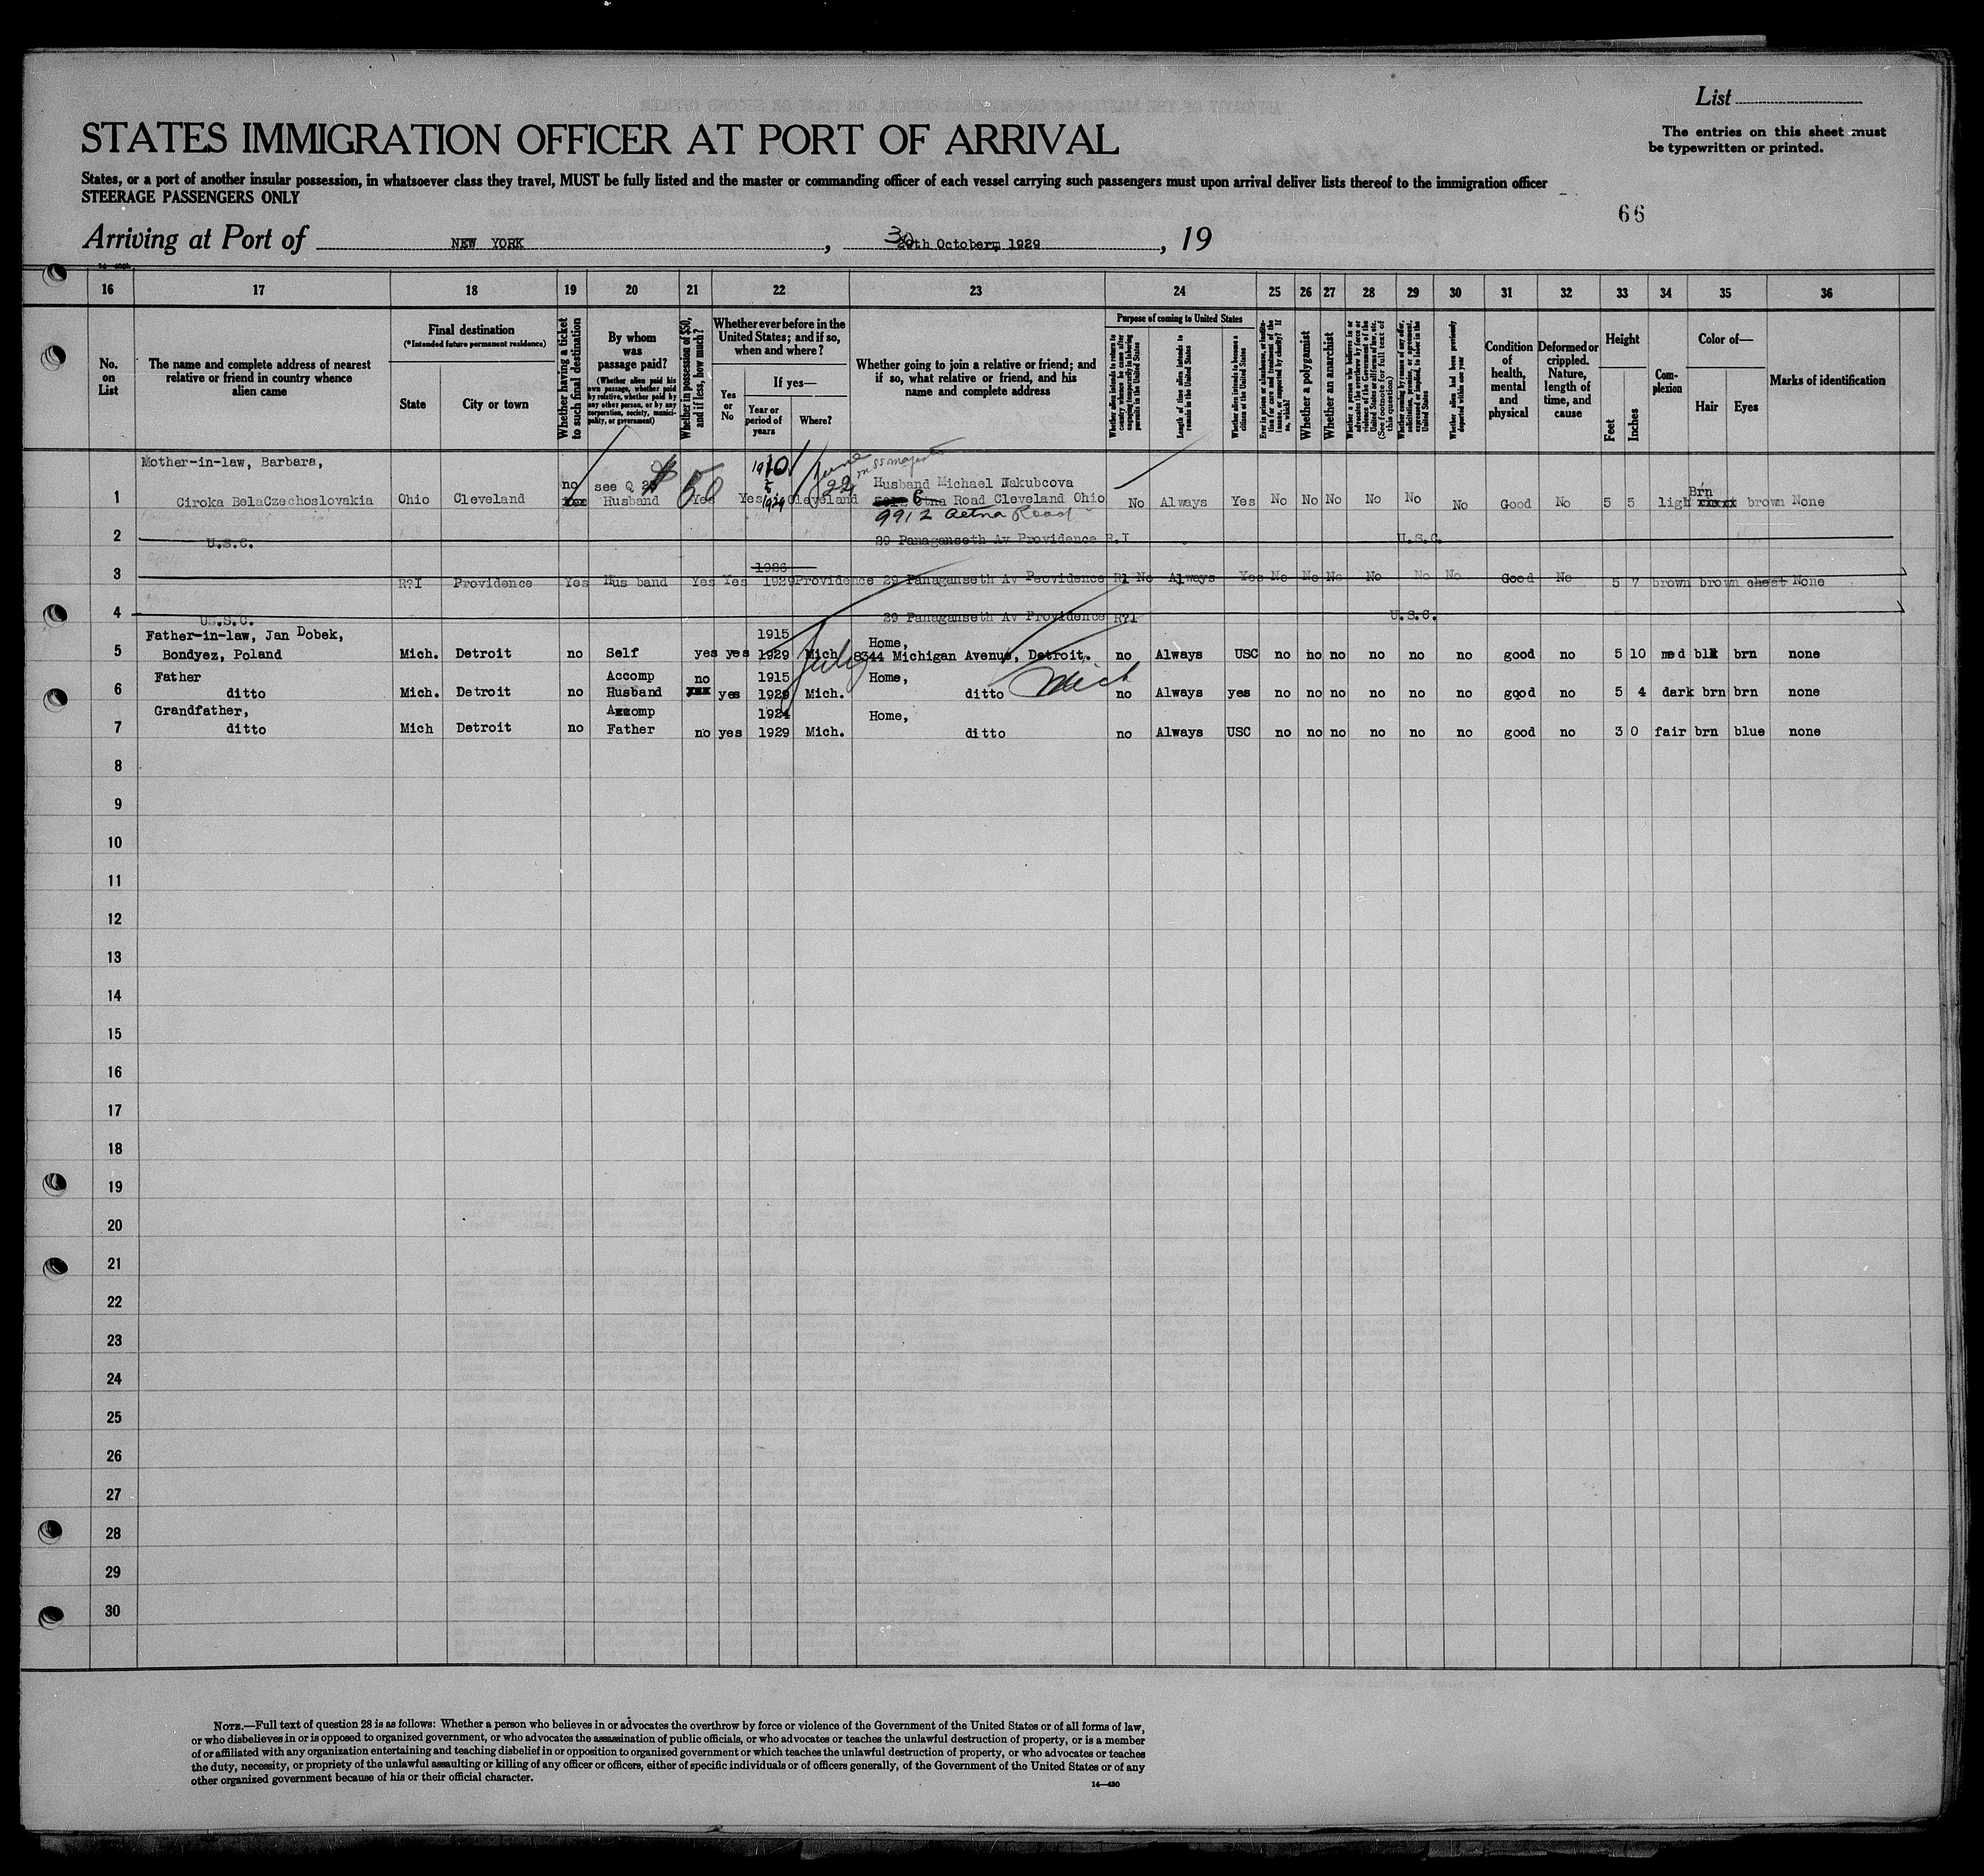 List
STATES IMMIGRATION OFFICER AT PORT OF ARRIVAL
The entries on this sheet must
be typewritten or printed.
States, or a port of another insular possession, in whatsoever class they travel, MUST be fully listed and the master or commanding officer of each vessel carrying such passengers must upon arrival deliver lists thereof to the immigration officer
STEERAGE PASSENGERS ONLY
66
Arriving at Port of NEW YORK, 30th October, 1929, 19
16 17 18 19 20 21 22 23 24 25 26 27 28 29 30 31 32 33 34 35 36
No. on List
The name and complete address of nearest relative or friend in country whence alien came
Final destination
(*Intended future permanent residence)
State
City or town
Whether having a ticket to such final destination
By whom was passage paid?
(Whether alien paid his own passage, whether paid by relative, whether paid by any other person, or by any corporation, society, municipality, or government)
Whether in possession of $50, and if less, how much?
Whether ever before in the United States; and if so, when and where?
Yes or No
If yes—
Year or period of years
Where?
Whether going to join a relative or friend; and if so, what relative or friend, and his name and complete address
Purpose of coming to United States
Whether alien intends to return to country whence he came after engaging temporarily in laboring pursuits in the United States
Length of time alien intends to remain in the United States
Whether alien intends to become a citizen of the United States
Ever in prison or almshouse, or institution for care and treatment of the insane, or supported by charity? If so, which?
Whether a polygamist
Whether an anarchist
(See footnote for full text of this question)
Whether coming by reason of any offer, solicitation, promise, or agreement, expressed or implied, to labor in the United States
Whether alien had been previously deported within one year
Condition of health, mental and physical
Deformed or crippled. Nature, length of time, and cause
Height
Feet
Inches
Complexion
Color of—
Hair
Eyes
Marks of identification
Mother-in-law, Barbara,
1 Ciroka BelaCzechoslovakia Ohio Cleveland no see Q Husband $ 50 Yes Yes 1910 1929 Cleveland June 22 on SS Majestic Husband Michael Jakubcova
Road Cleveland Ohio No Always Yes No No No No No No Good No 5 5 ligh Brn brown None
9912 Aetna Road
2 U.S.C. 29 Panaganseth Av Providence R.I U.S.C.
1926
3 R?I Providence Yes Hus band Yes Yes 1929 Providence 29 Panaganseth Av Peovidence RI No Always Yes No No No No No No Good No 5 7 brown brown chest None
4 U.S.C. 29 Panaganseth Av Providence R?I U.S.C.
Father-in-law, Jan Dobek, 1915 Home,
5 Bondyez, Poland Mich. Detroit no Self yes yes 1929 Mich July 8344 Michigan Avenue, Detroit. Mich no Always USC no no no no no no good no 5 10 med blk brn none
Father Accomp no 1915 Home,
6 ditto Mich. Detroit no Husband yes 1929 Mich. ditto no Always yes no no no no no no good no 5 4 dark brn brn none
Grandfather, Accomp 1924 Home,
7 ditto Mich Detroit no Father no yes 1929 Mich. ditto no Always USC no no no no no no good no 3 0 fair brn blue none
8
9
10
11
12
13
14
15
16
17
18
19
20
21
22
23
24
25
26
27
28
29
30
NOTE.—Full text of question 28 is as follows: Whether a person who believes in or advocates the overthrow by force or violence of the Government of the United States or of all forms of law,
or who disbelieves in or is opposed to organized government, or who advocates the assassination of public officials, or who advocates or teaches the unlawful destruction of property, or is a member
of or affiliated with any organization entertaining and teaching disbelief in or opposition to organized government or which teaches the unlawful destruction of property, or who advocates or teaches
the duty, necessity, or propriety of the unlawful assaulting or killing of any officer or officers, either of specific individuals or of officers generally, of the Government of the United States or of any
other organized government because of his or their official character.
14—430